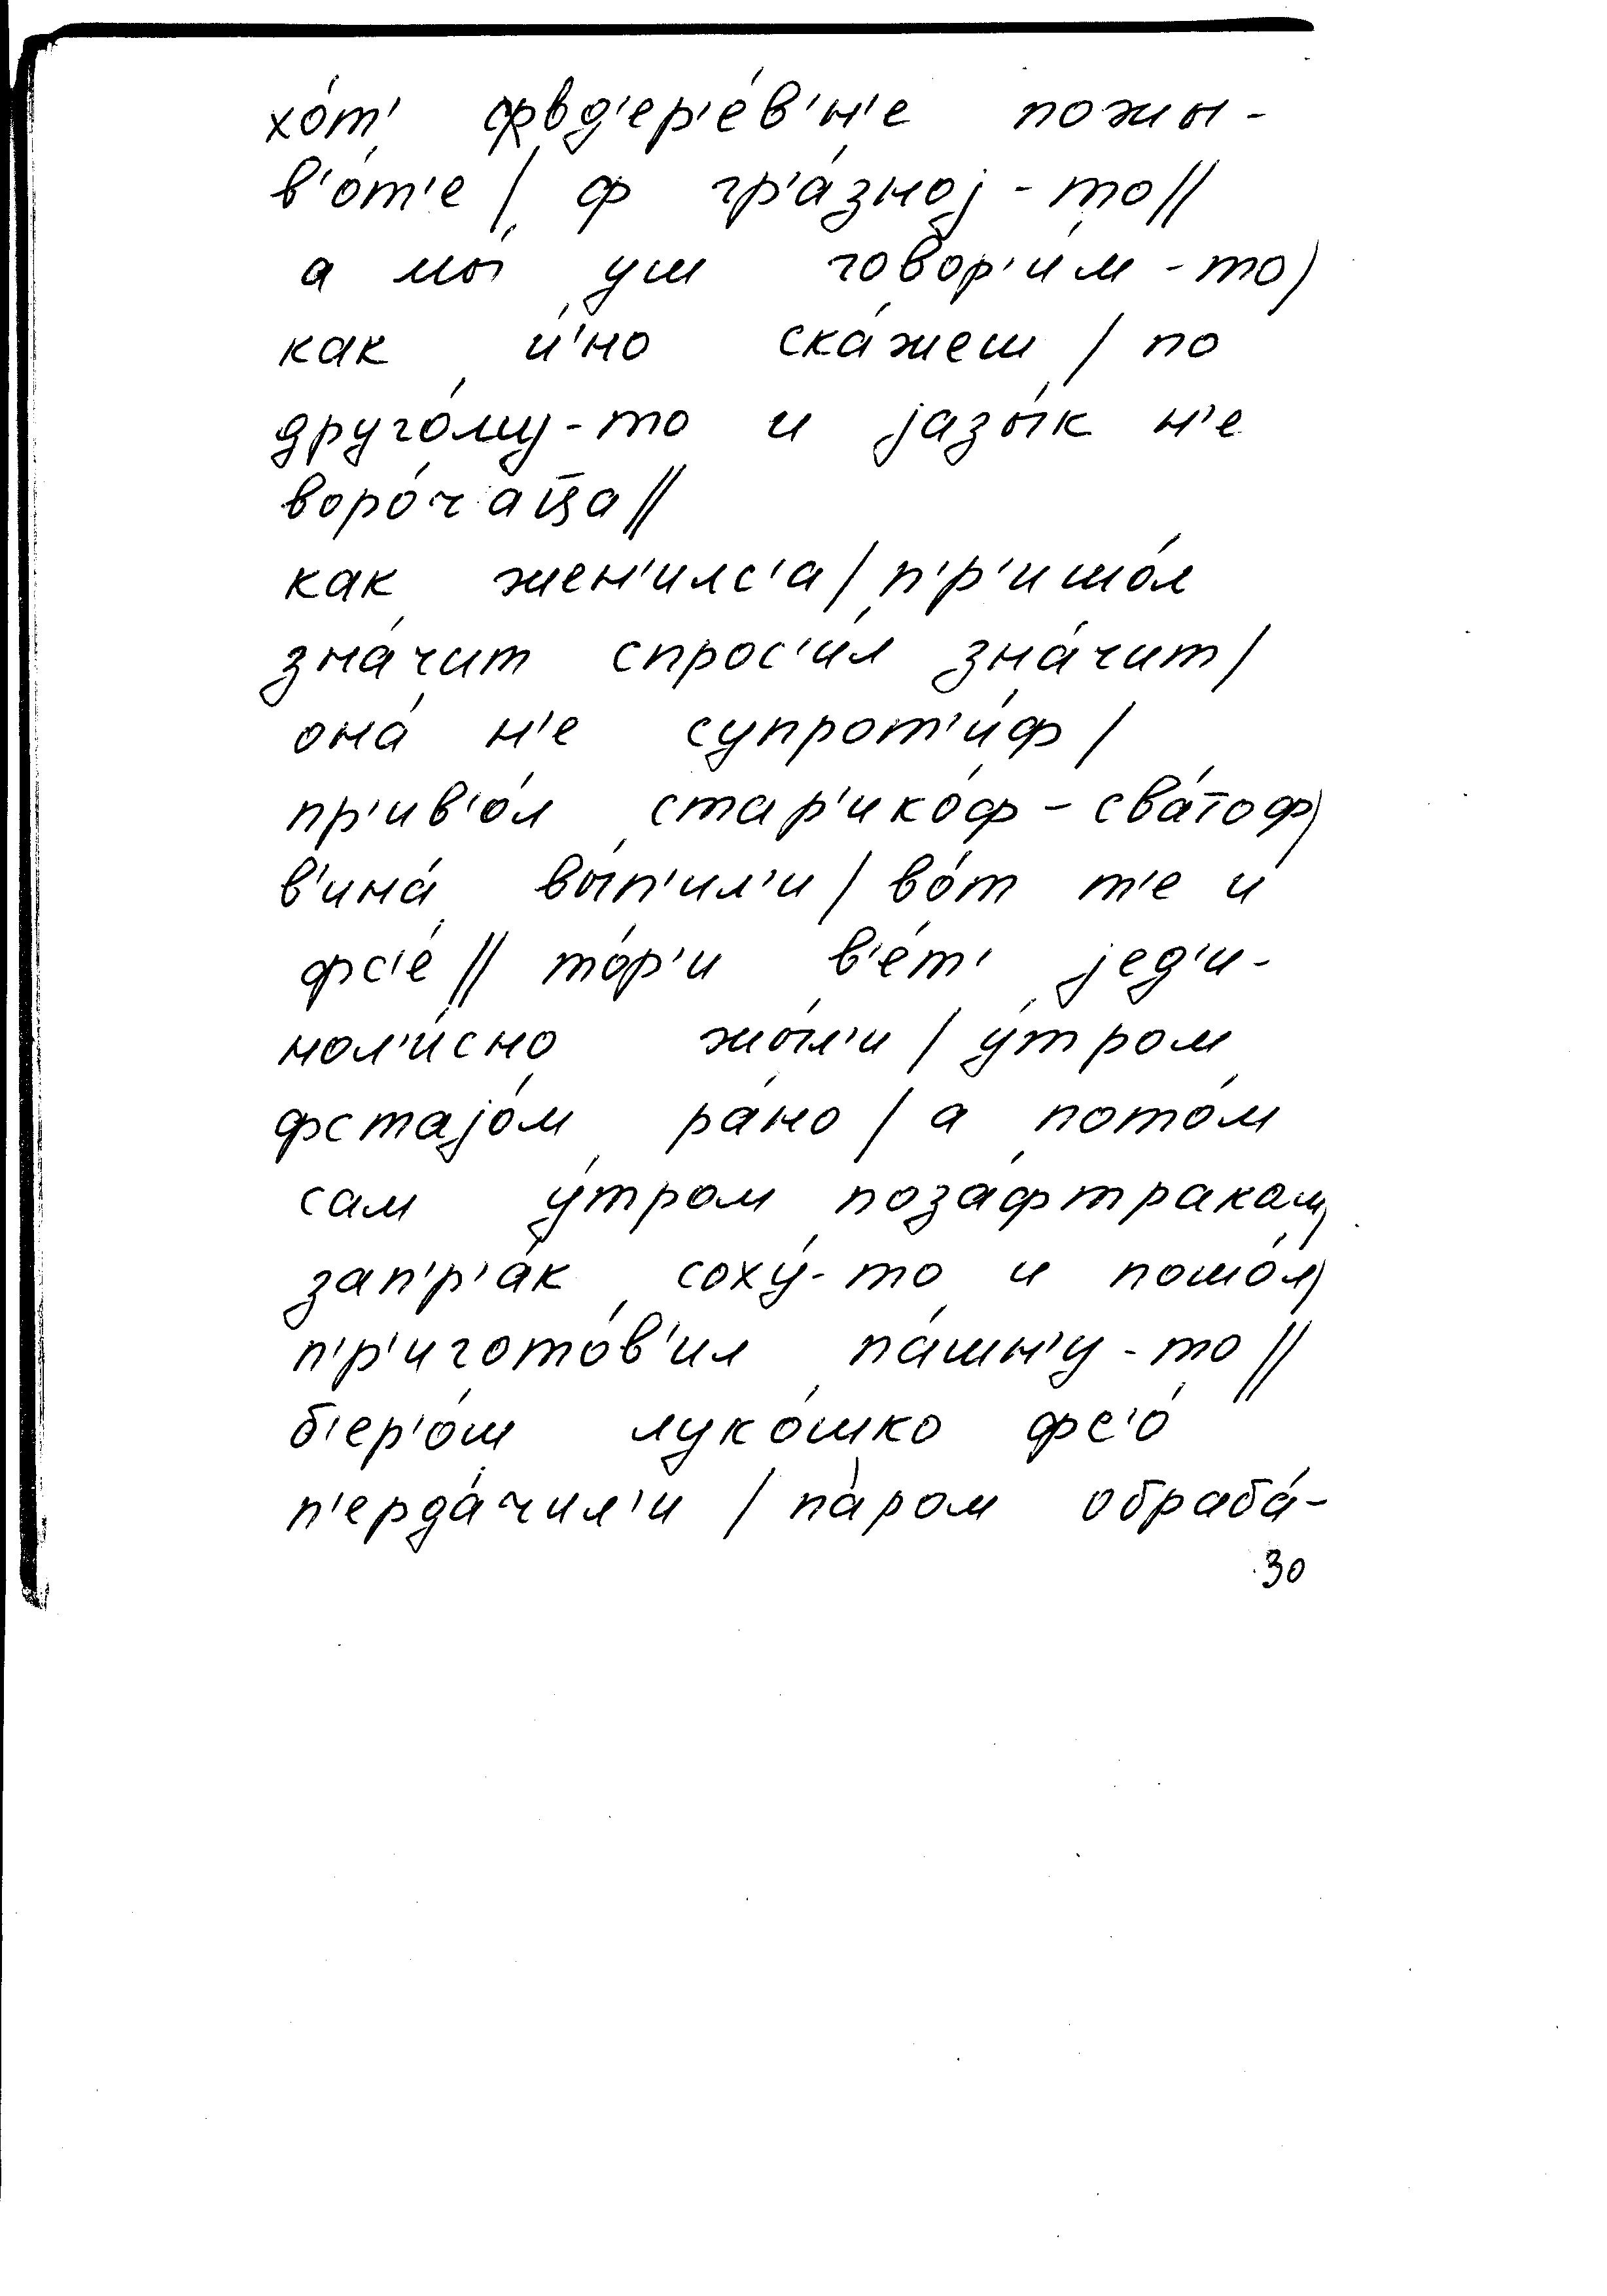 хо́т' фвд'ер'е́в'н'е пожы-
в'о́т'е / ф гр'а́зној-то //
а мы́ уш говор'и́м-то /
как и́'но ска́жеш / по
друго́му-то и јазы́к н'е
воро́ча̅ц̅а //
как жен'илс'а / п'р'ишо́л
зна́чит спрос'и́л зна́чит /
она́ н'е супрот'и́ф /
пр'ив'о́л стар'ико́ф-сва́тоф /
в'ина́ вы́п'ил'и / во́т т'е и
фс'е́ // то́р'и в'е́т' јед'и-
нол'и́сно жы́л'и / у́тром
фстајо́м ра́но / а пото́м
сам у́тром поза́фтракам /
зап'р'а́к соху́-то и пошо́л /
п'р'игото́в'ил па́шн'у-то //
б'ер'о́ш луко́шко фс'о́
п'ерда́чил'и / па́ром обраба́-
30